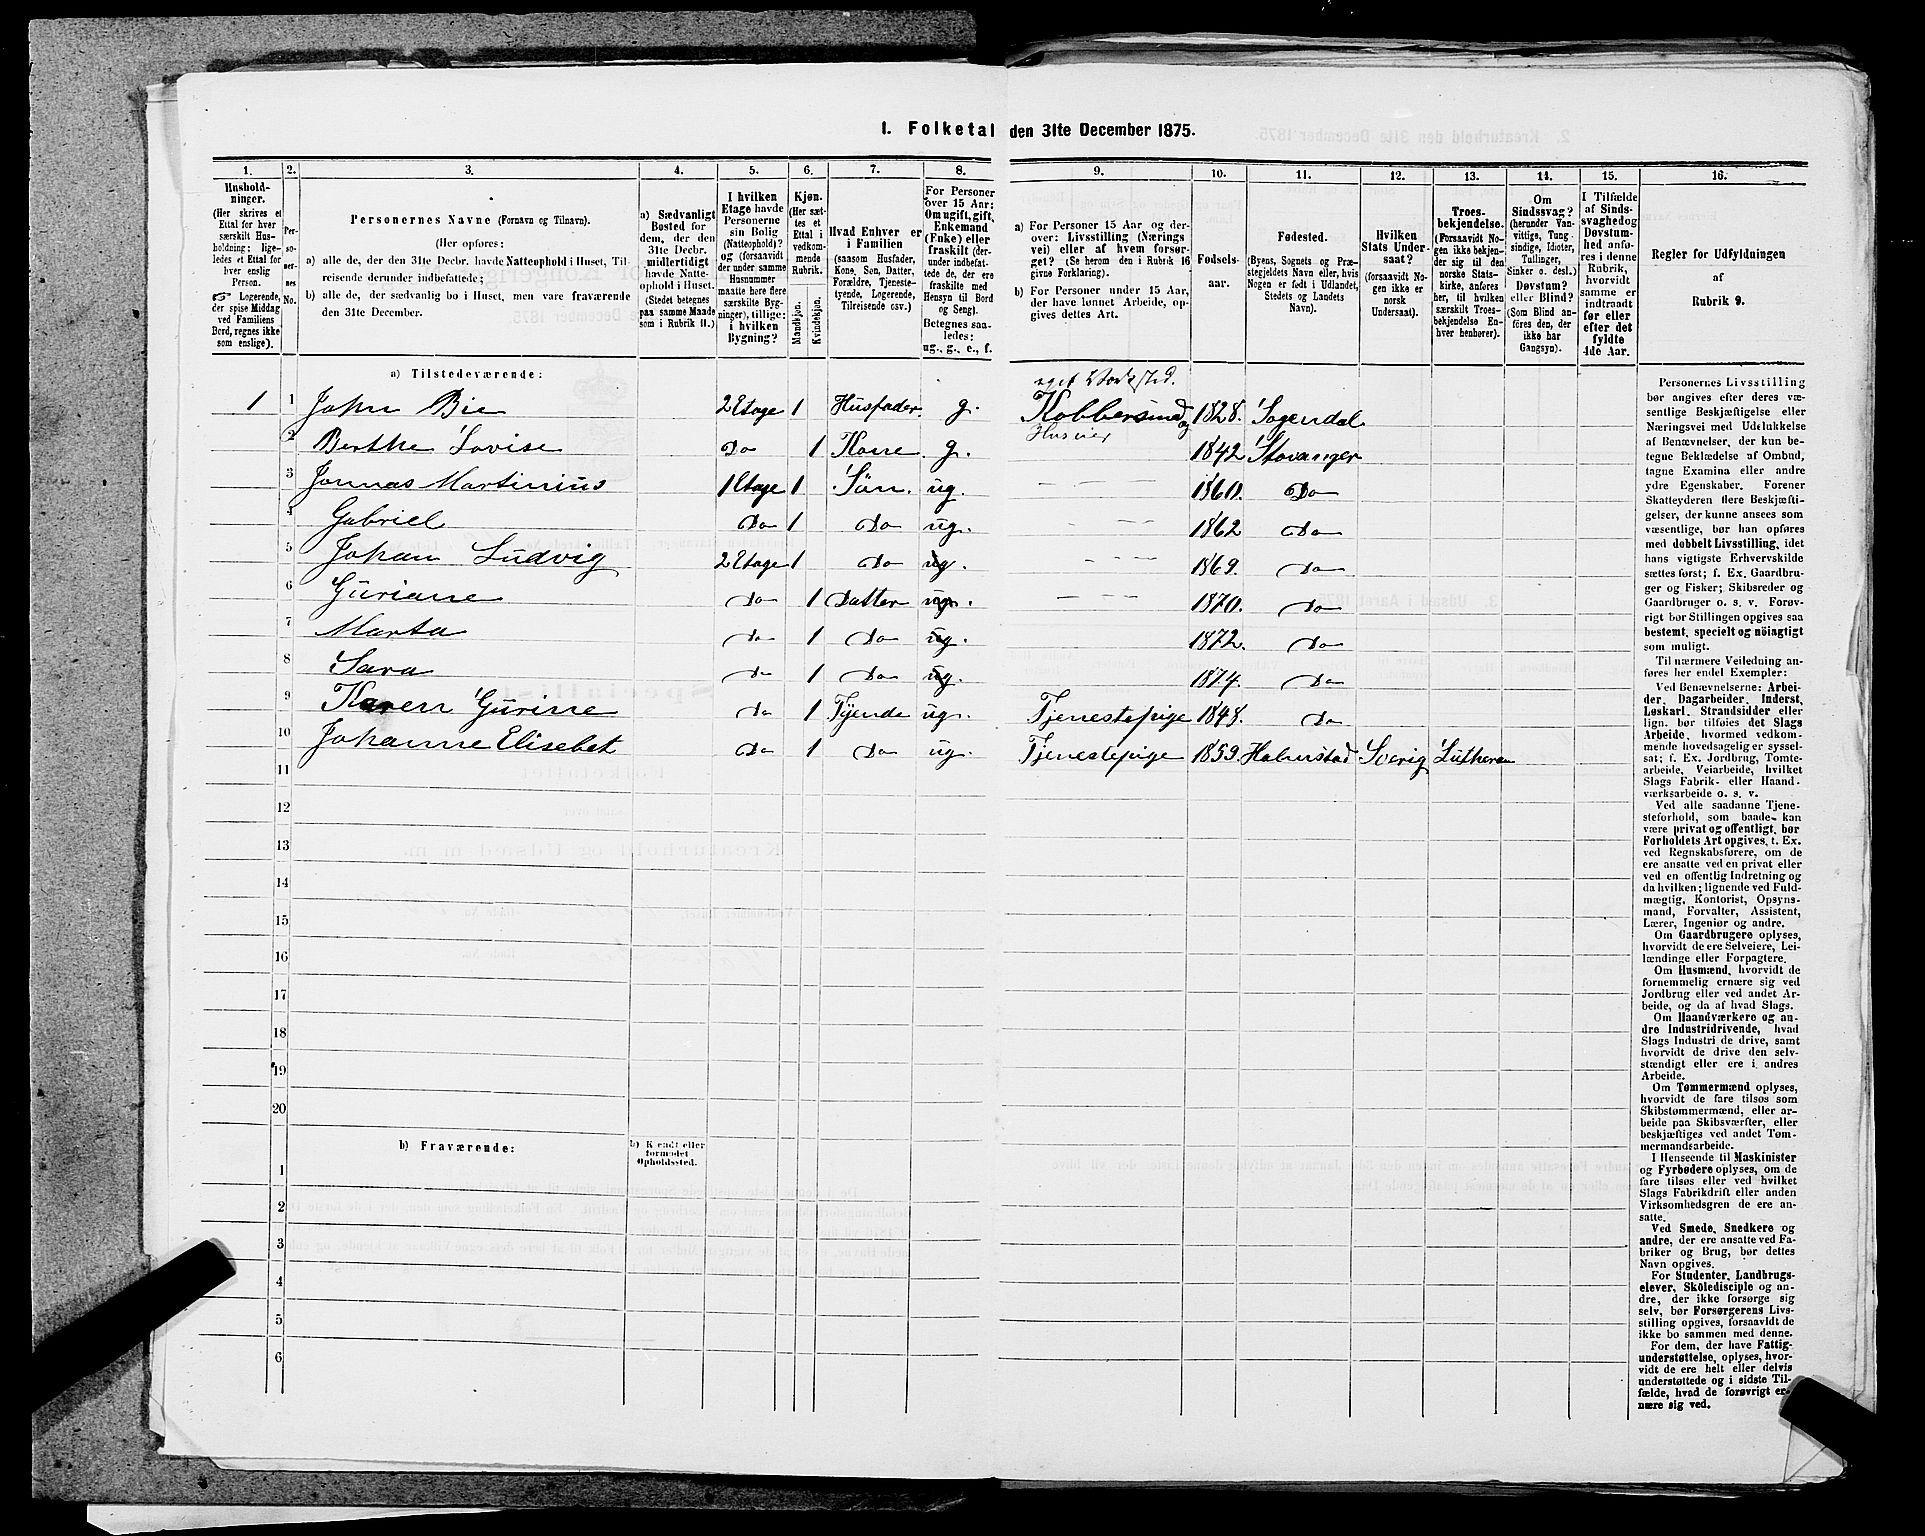 1. Folketal den 31te December 1875.
1. 2. 3. 4. 5. 6. 7. 8. 9. 10. 11. 12. 13. 14. 15. 16.
Hushold-
ninger.
(Her skrives et
Ettal for hver
særskilt Hus-
holdning; lige-
ledes et Ettal for
hver enslig
Person.
☞ Logerende,
der spise Middag
ved Familiens
Bord, regnes ikke
som enslige).
Per-
so-
ner-
nes
No.
Personernes Navne (Fornavn og Tilnavn).
(Her opføres:
a) alle de, der den 31te Decbr. havde Natteophold i Huset, Til-
reisende derunder indbefattede;
b) alle de, der sædvanlig bo i Huset, men vare fraværende
den 31te December.
a) Sædvanligt
Bosted for
dem, der den
31te Decbr.
midlertidigt
havde Natte-
ophold i Huset.
(Stedet betegnes
paa samme Maade
som i Rubrik 11.)
I hvilken
Etage havde
Personerne
sin Bolig
(Natteophold)?
og (forsaavidt
der under samme
Husnummer
maatte høre flere
særskilte Byg-
ninger), tillige:
i hvilken
Bygning?
Kjøn.
(Her sæt-
tes et
Ettal i
vedkom-
mende
Rubrik.
Mandkjøn.
Kvindekjøn.
Hvad Enhver er
i Familien
(saasom Husfader,
Kone, Søn, Datter,
Forældre, Tjeneste-
tyende, Logerende,
Tilreisende osv.)
For Personer
over 15 Aar:
Om ugift, gift,
Enkemand
(Enke) eller
fraskilt (der-
under indbefat-
tede de, der ere
fraskilte med
Hensyn til Bord
og Seng).
Betegnes saa-
ledes:
ug., g., e., f.
a) For Personer 15 Aar og der-
over: Livsstilling (Nærings
vei) eller af hvem forsør-
get? (Se herom den i Rubrik 16
givne Forklaring).
b) For Personer under 15 Aar,
der have lønnet Arbeide, op-
gives dettes Art.
Fødsels-
aar.
Fødested.
(Byens, Sognets og Præ-
stegjeldets Navn eller, hvis
Nogen er født i Udlandet,
Stedets og Landets
Navn).
Hvilken
Stats Under-
saat?
(forsaavidt No-
gen ikke er
norsk
Undersaat).
Troes-
bekjendelse.
(Forsaavidt No-
gen ikke bekjen-
der sig til den
norske Stats-
kirke, anføres
her, til hvilken
særskilt Troes-
bekjendelse En-
hver henhører).
Om
Sindssvag?
(herunder Van-
vittige, Tung
sindige, Idioter,
Tullinger,
Sinker o. desl.)
Døvstum?
eller Blind?
(Som Blind an-
føres den, der
ikke har
Gangsyn).
I Tilfælde
af Sinds-
svaghed og
Døvstum-
hed anfø-
res i denne
Rubrik,
hvorvidt
samme er
indtraadt
før eller
efter det
fyldte
4de Aar.
Regler for Udfyldningen
af
Rubrik 9.
a) Tilstedeværende:
eget Verksted.
1 1 John Bie 2 Etage 1 Husfader g. Kobbersmed og 1828. Sogendal
Huseier
2 Berthe Lovise Do 1 Kone g. 1842 Stavanger
3 Jonnas Martinius 1 Etage 1 Søn. ug. 1860. Do
4 Gabriel Do 1 Do ug. 1862 Do
5 Johan Ludvig 2 Etage 1 Do ug. 1869. Do
6 Guriane Do 1 Datter ug. 1870. Do
7 Marta Do 1 Do ug. 1872. Do
8 Sara Do 1 Do ug. 1874. Do
9 Karen Gurine Do 1 Tyende ug. Tjenestepige 1848. Do
10 Johanne Elisebet Do 1 Do ug. Tjenestepige 1859. Halmstad Sverig Luthera
11
12
13
14
15
16
17
18
19
20
b) Fraværende:
b) Kjendt eller
formodet
Opholdssted.
1
2
3
4
5
6
Personernes Livsstilling
bør angives efter deres væ-
sentlige Beskjæftigelse eller
Næringsvei med Udelukkelse
af Benævnelser, der kun be-
tegne Beklædelse af Ombud,
tagne Examina eller andre
ydre Egenskaber. Forener
Skatteyderen flere Beskjæfti-
gelser, der kunne ansees som
væsentlige, bør han opføres
med dobbelt Livsstilling, idet
hans vigtigste Erhvervskilde
sættes først; f. Ex. Gaardbru-
ger og Fisker; Skibsreder og
Gaardbruger o. s. v. Forøv-
rigt bør Stillingen opgives saa
bestemt, specielt og nöiagtigt
som muligt.
Til nærmere Veiledning an-
føres her endel Exempler:
Ved Benævnelserne: Arbei-
der, Dagarbeider, Inderst,
Løskarl, Strandsidder eller
lign. bør tilføies det Slags
Arbeide, hvormed vedkom-
mende hovedsagelig er syssel-
sat; f. Ex. Jordbrug, Tomte-
arbeide, Veiarbeide, hvilket
Slags Fabrik- eller Haand-
værksarbeide o. s. v.
Ved alle saadanne Tjene-
steforhold, som baade kan
være privat og offentligt, bør
Forholdets Art opgives, t. Ex.
ved Regnskabsførere, om de
ere ansatte ved en privat eller
ved en offentlig Indretning og
da hvilken; lignende ved Fuld-
mægtig, Kontorist, Opsyns-
mand, Forvalter, Assistent,
Lærer, Ingeniør og andre.
Om Gaardbrugere oplyses,
hvorvidt de ere Selveiere, Lei-
lændinge eller Forpagtere.
Om Husmænd, hvorvidt de
fornemmelig ernære sig ved
Jordbrug eller ved andet Ar-
beide, og da af hvad Slags.
Om Haandværkere og an-
dre Industridrivende, hvad
Slags Industri de drive, samt
hvorvidt de drive den selv-
stændigt eller ere i andres
Arbeide.
Om Tømmermænd oplyses,
hvorvidt de fare tilsøs som
Skibstømmermænd, eller ar-
beide paa Skibsværfter, eller
beskjæftiges ved andet Tøm-
mermandsarbeide.
I Henseende til Maskinister
og Fyrbødere oplyses, om de
fare tilsøs eller ved hvilket
Slags Fabrikdrift eller anden
Virksomhedsgren de ere an-
satte.
Ved Smede, Snedkere og
andre, der ere ansatte ved Fa-
briker og Brug, bør dettes
Navn opgives.
For Studenter, Landbrugs-
elever, Skoledisciple og an-
dre, der ikke forsørge sig
selv, bør Forsørgerens Livs-
stilling opgives, forsaavidt de
ikke bo sammen med denne.
For dem, der have Fattig-
understøttelse, oplyses, hvor-
vidt de ere helt eller delvis
understøttede og i sidste Til-
fælde, hvad de forøvrigt er-
nære sig ved.